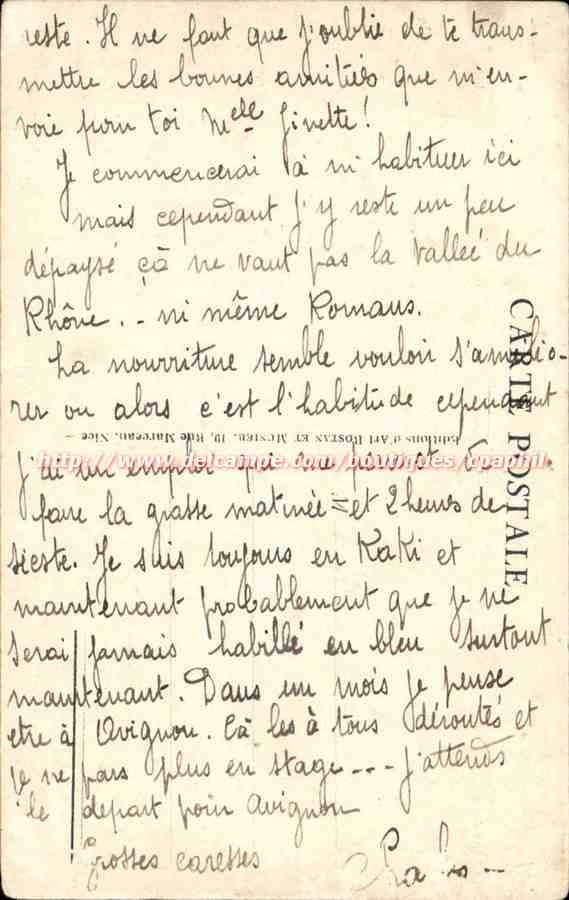 reste. Il ne faut que j'oublie de te trans-
mettre les bonnes amitiés que m'en-
voie pour toi Melle Ginette!
Je commencerai à m'habituer ici
mais cependant j'y reste un peu
dépaysé çà ne vaut pas la Vallée du
Rhône.. ni même Romans.
La nourriture semble vouloir s'amélio-
rer ou alors c'est l'habitude cependant
j'ai un emploi qui me permet de
faire la grasse matinée et 2 heures de
sieste. Je suis toujours en KaKi et
maintenant probablement que je ne
serai jamais habillé en bleu surtout
maintenant. Dans un mois je pense
etre à Avignon. Cà les à tous déroutés et
je ne pars plus en stage --- j'attends
le depart pour Avignon
Grosses caresses
CARTE POSTALE
Editions d'Art ROSTAN ET MUNIER, 19, Rue Marceau, Nice
http://www.delcampe.com/boutiques/cpaphil